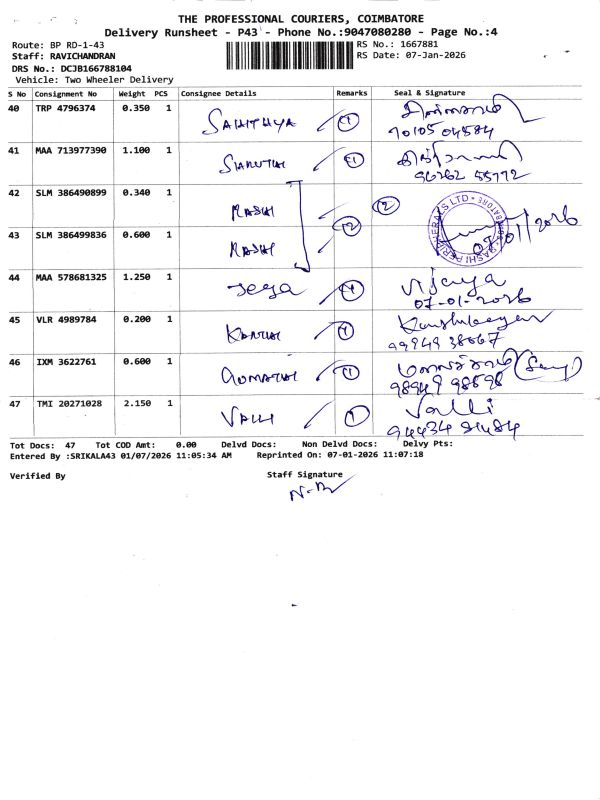 THE PROFESSIONAL COURIERS, COIMBATORE
Delivery Runsheet - P43 - Phone No.:9047080280 - Page No.:4
Route: BP RD-1-43
RS No.: 1667881
Staff: RAVICHANDRAN
RS Date: 07-Jan-2026
DRS No.: DCJB166788104
Vehicle: Two Wheeler Delivery
S No Consignment No Weight PCS Consignee Details Remarks Seal & Signature
40 TRP 4796374 0.350 1
41 MAA 713977390 1.100 1
42 SLM 386490899 0.340 1 RASHI 12
43 SLM 386499836 0.600 1 RASHI 12
07/01/2026
44 MAA 578681325 1.250 1 Jega Vijaya
07-01-2026
45 VLR 4989784 0.200 1
46 IXM 3622761 0.600 1 GOMATHI
47 TMI 20271028 2.150 1 VALLI 1 Valli
Tot Docs: 47 Tot COD Amt: 0.00 Delvd Docs: Non Delvd Docs: Delvy Pts:
Entered By :SRIKALA43 01/07/2026 11:05:34 AM Reprinted On: 07-01-2026 11:07:18
Verified By Staff Signature